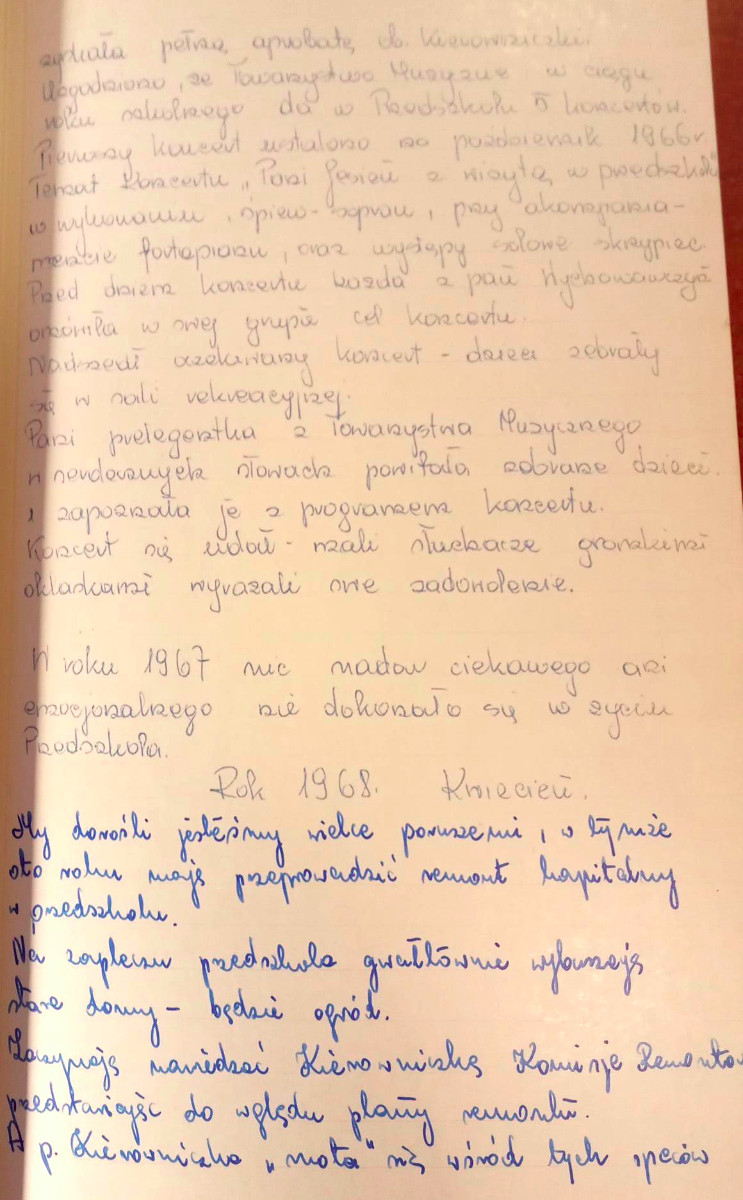 zyskała pełną aprobatę ob. Kierowniczki.
Uzgodniono, że Towarzystwo Muzyczne w ciągu
roku szkolnego da w Przedszkolu 5 koncertów.
Pierwszy koncert ustalono na październik 1966 r.
Temat Koncertu „Pani Jesień z wizytą w przedszkolu"
w wykonaniu, śpiew - sopran, przy akompania-
mencie fortepianu, oraz występy solowe skrzypiec.
Przed dniem koncertu każda z pań Wychowawczyń
omówiła w swej grupie cel koncertu.
Nadszedł oczekiwany koncert - dzieci zebrały
się w sali rekreacyjnej.
Pani prelegentka z Towarzystwa Muzycznego
w serdecznych słowach powitała zebrane dzieci.
i zapoznała je z programem koncertu.
Koncert się udał - mali słuchacze gromkimi
oklaskami wyrażali swe zadowolenie.
W roku 1967 nic nadzw ciekawego ani
emocjonalnego nie dokonało się w życiu
Przedszkola.
Rok 1968. Kwiecień.
My dorośli jesteśmy wielce poruszeni, w tymże
oto roku mają przeprowadzić remont kapitalny
w przedszkolu.
Na zapleczu przedszkola gwałtównie wyburzają
stare domy - będzie ogród.
Zaczynają nawiedzać Kierowniczkę Komisje Remontow
przedstawiając do wglądu plany remontu.
A p. Kierowniczka „mota" się wśród tych speców